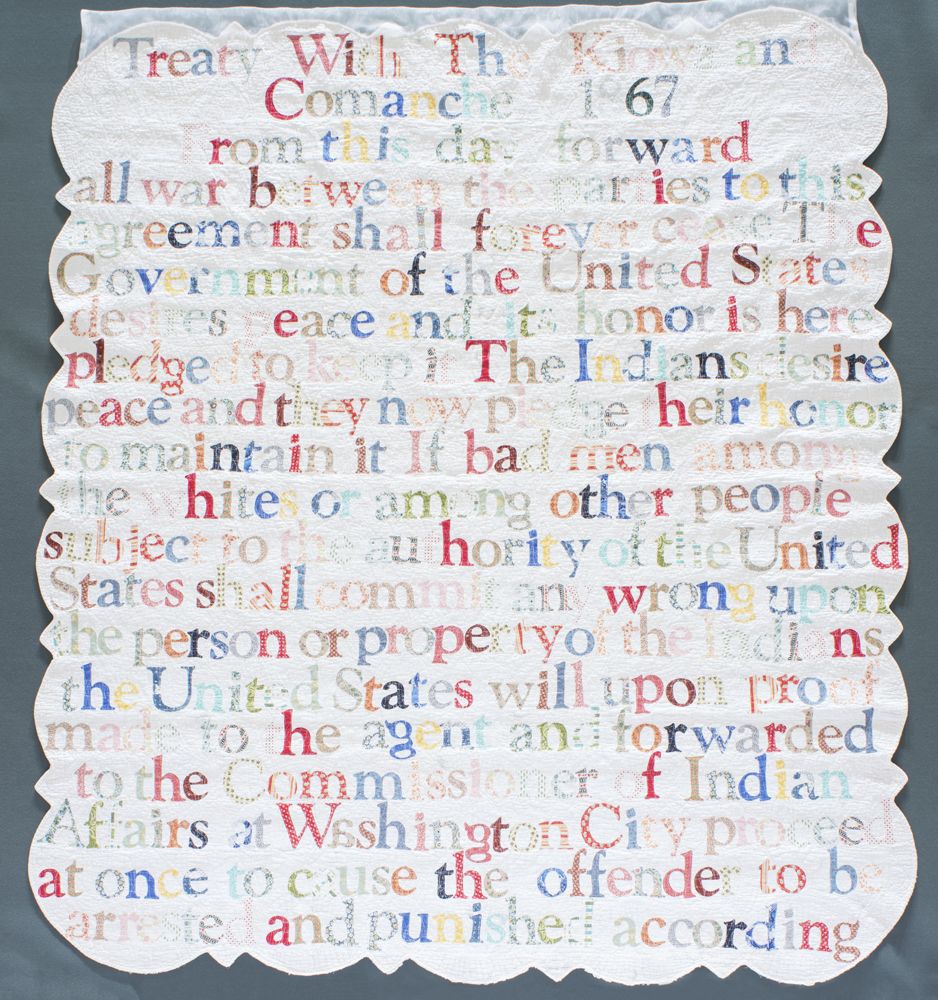 Treaty With The Kiowa and
Comanche 1867
From this day forward
all war between the parties to this
agreement shall forever cease The
Government of the United States
desires peace and its honor is here
pledged to keep it The Indians desire
peace and they now pledge their honor
to maintain it If bad men among
the whites or among other people
subject to the authority of the United
States shall commit any wrong upon
the person or property of the Indians
the United States will upon proof
made to the agent and forwarded
to the Commissioner of Indian
Affairs at Washington City proceed
at once to cause the offender to be
arrested and punished according